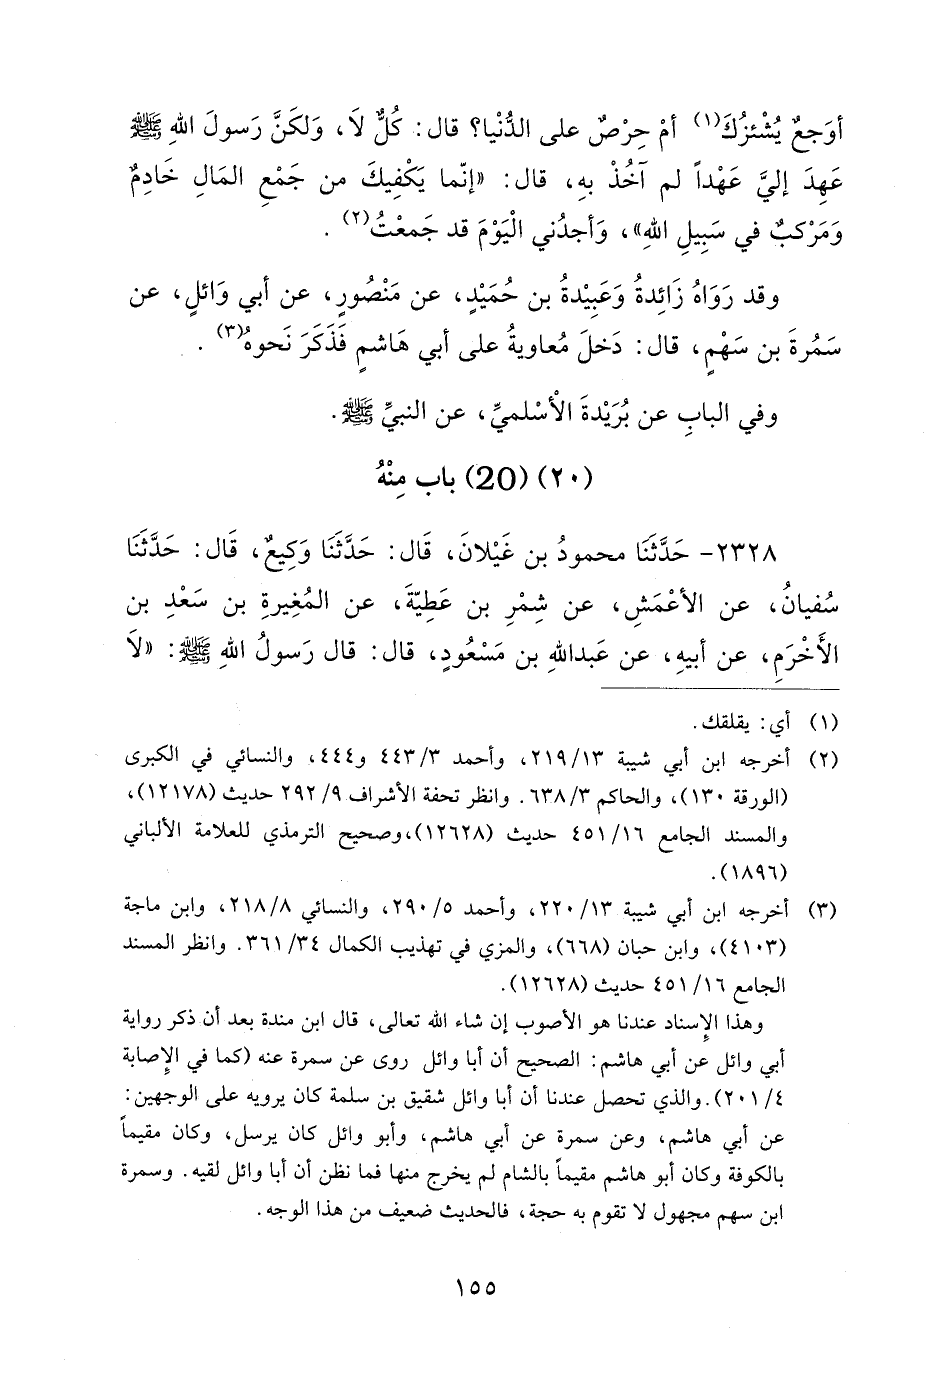 أوَجعٌ يُشْئزُكَ(١) أمْ حِرْصٌ على الدُّنْيا؟ قال: كُلٌّ لَا، وَلكَنَّ رَسولَ اللهِ ﷺ
عَهِدَ إليَّ عَهْداً لم آخُذْ بهِ، قال: «إنّما يَكْفِيكَ من جَمْعِ المَالِ خَادِمٌ
وَمَرْكبٌ في سَبِيلِ اللهِ»، وَأجدُني الْيَوْمَ قد جَمعْتُ(٢).
وقد رَوَاهُ زَائِدةُ وَعَبِيْدةُ بن حُمَيْدٍ، عن مَنْصُورٍ، عن أبي وَائلٍ، عن
سَمُرةَ بن سَهْمٍ، قال: دَخلَ مُعاويةُ على أبي هَاشمٍ فَذَكَرَ نَحوهُ(٣).
وفي البابِ عن بُرَيْدةَ الأسْلميِّ، عن النبيِّ ﷺ.
(٢٠) (20) باب مِنْهُ
٢٣٢٨- حَدَّثَنَا محمودُ بن غَيْلانَ، قَال: حَدَّثَنَا وَكِيعٌ، قَال: حَدَّثَنَا
سُفيانُ، عن الأعْمَشِ، عن شِمْرِ بن عَطِيّةَ، عن المُغِيرةِ بن سَعْدِ بن
الأَخْرَمِ، عن أبيهِ، عن عَبداللهِ بن مَسْعُودٍ، قال: قال رَسولُ اللهِ ﷺ: «لَا
(١) أي: يقلقك.
(٢) أخرجه ابن أبي شيبة ٢١٩/١٣، وأحمد ٤٤٣/٣ و٤٤٤، والنسائي في الكبرى
(الورقة ١٣٠)، والحاكم ٦٣٨/٣. وانظر تحفة الأشراف ٢٩٢/٩ حديث (١٢١٧٨)،
والمسند الجامع ٤٥١/١٦ حديث (١٢٦٢٨)،وصحيح الترمذي للعلامة الألباني
(١٨٩٦).
(٣) أخرجه ابن أبي شيبة ٢٢٠/١٣، وأحمد ٢٩٠/٥، والنسائي ٢١٨/٨، وابن ماجة
(٤١٠٣)، وابن حبان (٦٦٨)، والمزي في تهذيب الكمال ٣٦١/٣٤. وانظر المسند
الجامع ٤٥١/١٦ حديث (١٢٦٢٨).
وهذا الإسناد عندنا هو الأصوب إن شاء الله تعالى، قال ابن مندة بعد أن ذكر رواية
أبي وائل عن أبي هاشم: الصحيح أن أبا وائل روى عن سمرة عنه (كما في الإصابة
٢٠١/٤).والذي تحصل عندنا أن أبا وائل شقيق بن سلمة كان يرويه على الوجهين:
عن أبي هاشم، وعن سمرة عن أبي هاشم، وأبو وائل كان يرسل، وكان مقيماً
بالكوفة وكان أبو هاشم مقيماً بالشام لم يخرج منها فما نظن أن أبا وائل لقيه. وسمرة
ابن سهم مجهول لا تقوم به حجة، فالحديث ضعيف من هذا الوجه.
١٥٥